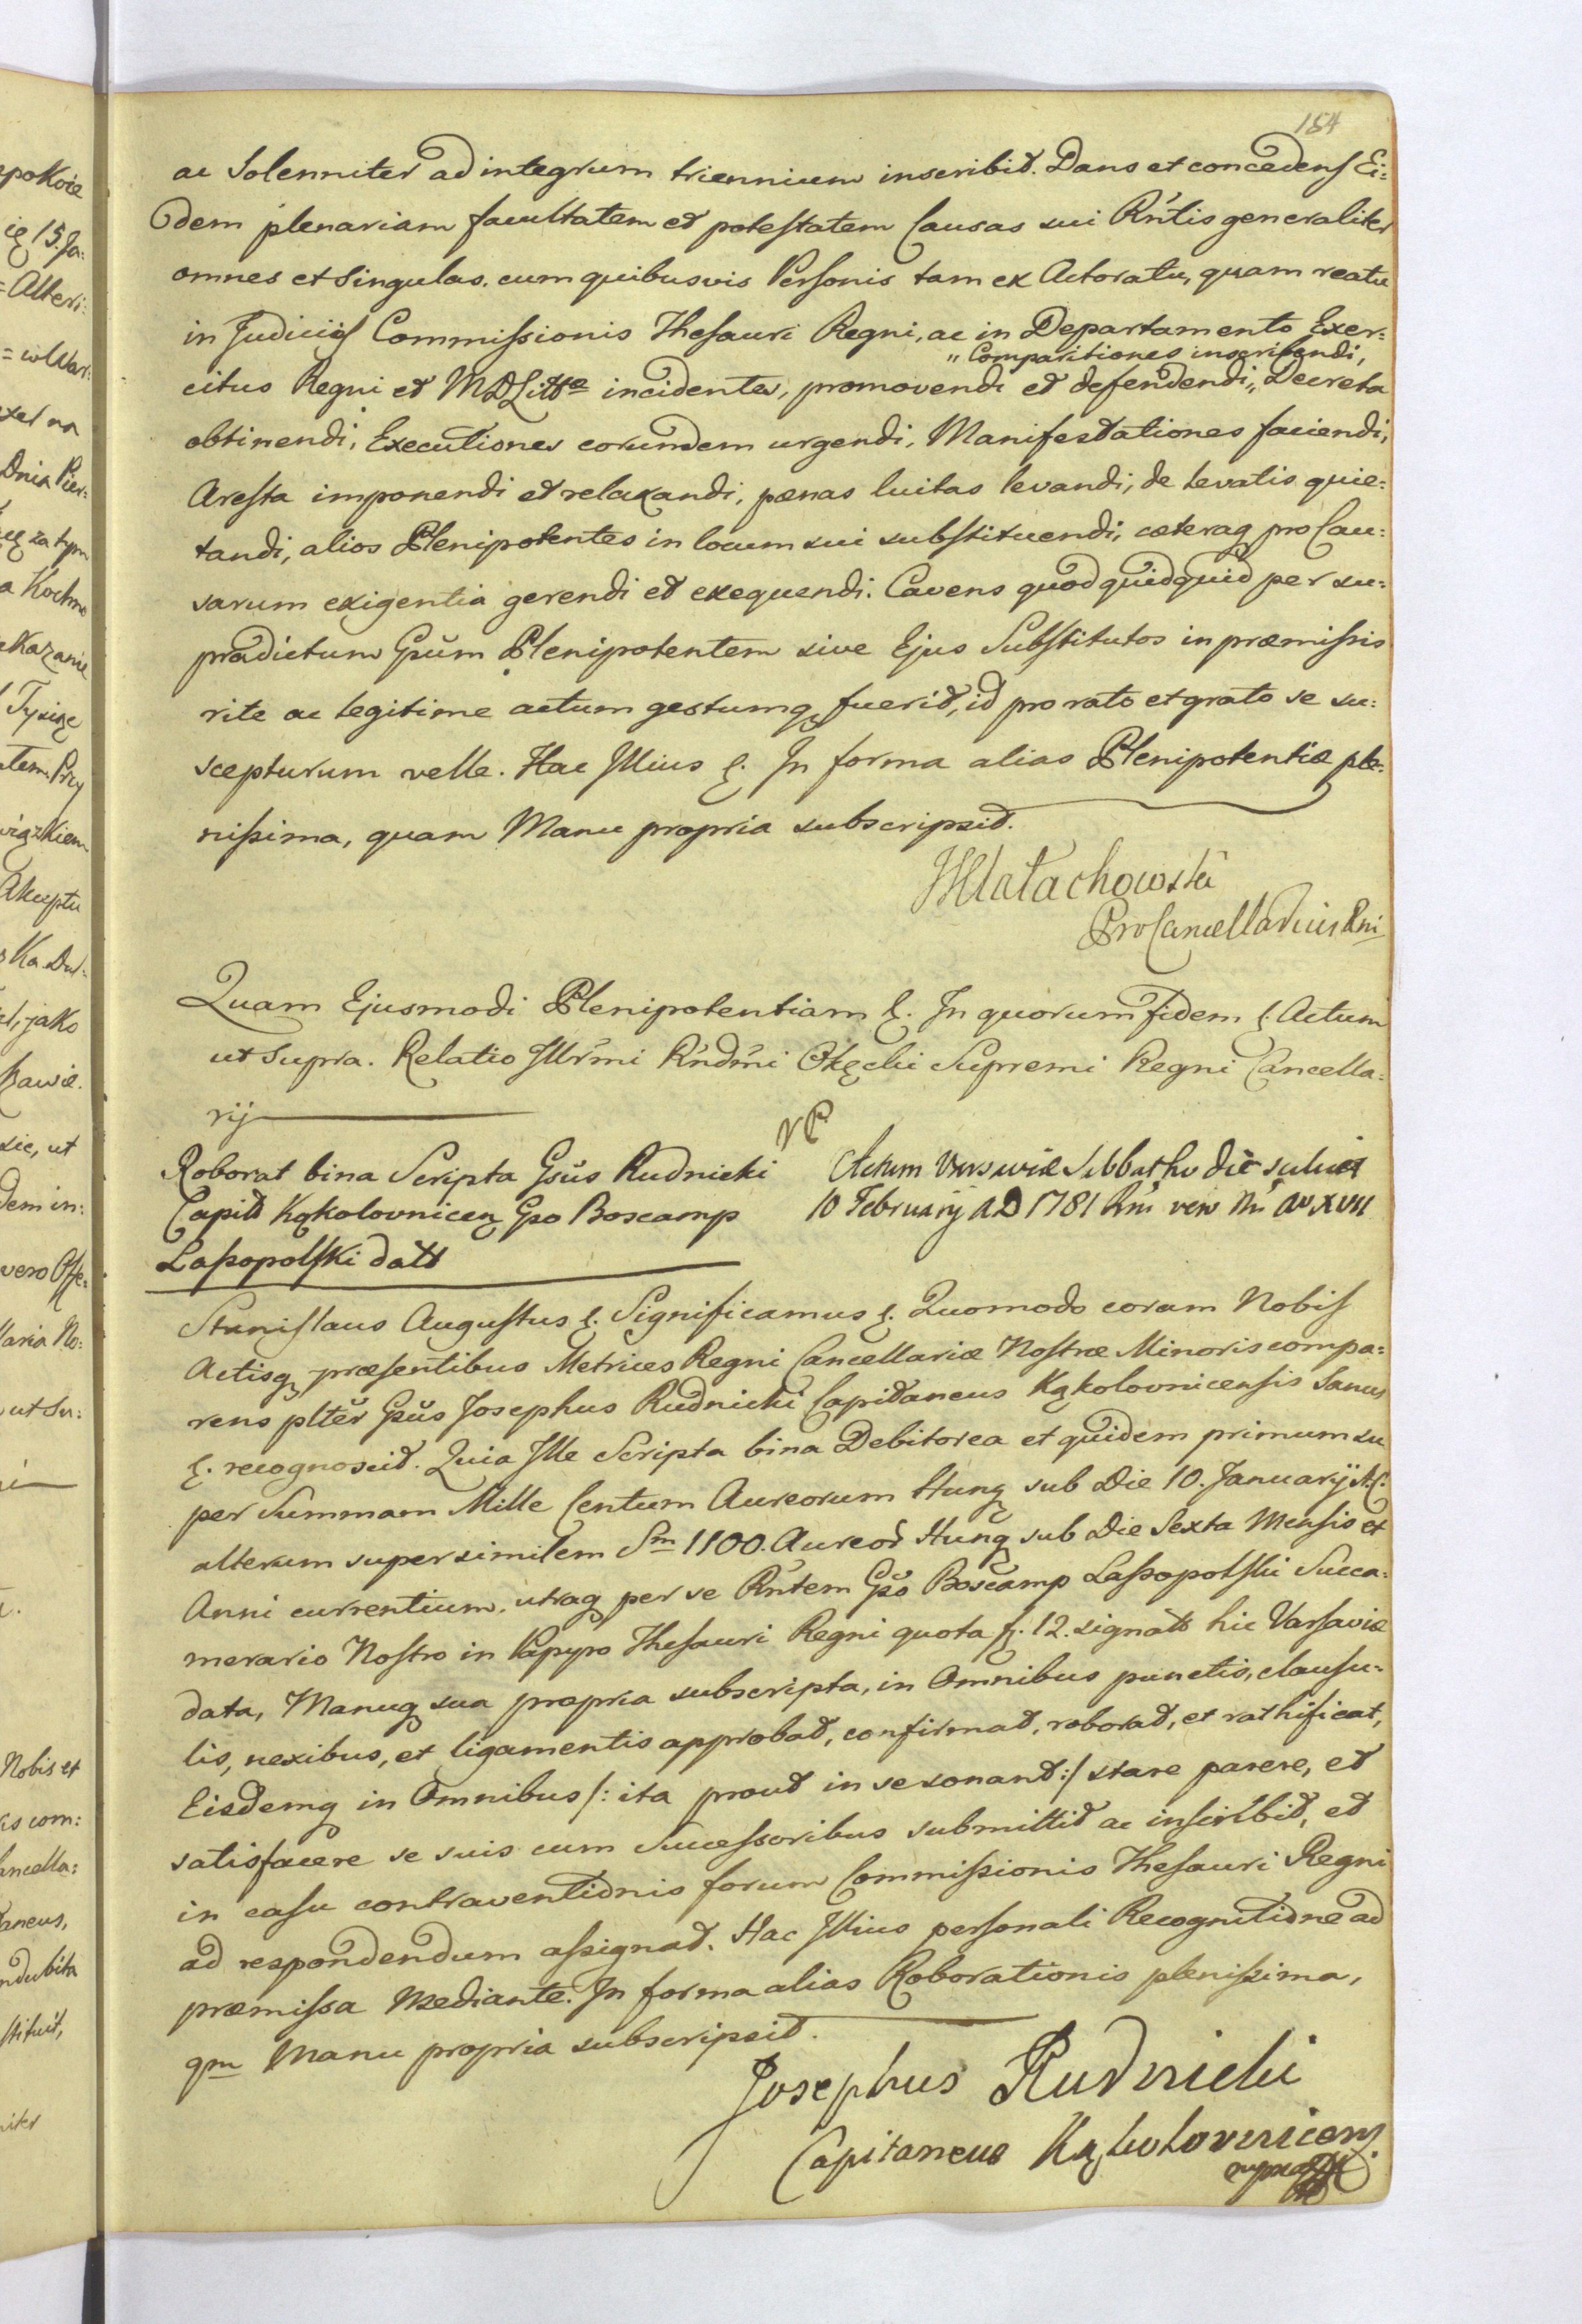 184
ac Solenniter ad integrum triennium inscribit. Dans et concedens Ei:
dem plenariam facultatem et potestatem Causas sui Rńtis generaliter
omnes et Singulas. cum quibusvis Personis tam ex Actoratu, quam reatu
in Judicijs Commissionis Thesauri Regni, ac in Departamento Exer:
„ Comparitiones inscribendi,
citus Regni et MDLittæ incidentes, promovendi et defendendi „ Decreta
obtinendi, Executiones eorumdem urgendi, Manifestationes faciendi,
Aresta imponendi et relaxandi, pænas luitas levandi, de levatis quie:
tandi, alios Plenipotentes in locum sui substituendi, cæteraq pro Cau:
sarum exigentia gerendi et exequendi. Cavens quod quidquid per su:
pradictum Gsũm Plenipotentem sive Ejus Substitutos in præmissis
rite ac legitime actum gestumq fuerit, id pro rato et grato se su:
scepturum velle. Hac Illius ę. In forma alias Plenipotentiæ ple:
nissima, quam Manu propria subscripsit.
Małachowski
ProCancellarius Rni
Quam Ejusmodi Plenipotentiam ę. In quorum fidem ę. Actum
ut Supra. Relatio Illr̃mi Rńdm̃i Okęcki Supremi Regni Cancella:
rij
Roborat bina Scripta Gsũs Rudnicki
Capit Kąkolovnicen Gso Boscamp
Lassopolski datt
Actum Varsaviæ Sabbatho die scilicet
10 February AD 1781 Rni vero Nri Aō XVII
Stanislaus Augustus ę. Significamus ę. Quomodo coram Nobis
Actisq præsentibus Metrices Regni Cancellariæ Nostræ Minoris compa:
rens pltĕr Gsũs Josephus Rudnicki Capitaneus Kąkolovnicensis Sanus
ę. recognoscit. Quia Ille Scripta bina Debitorea et quidem primum su
per Summam Mille Centum Aureorum Hung sub Die 10. Januarij A.C.
alterum super similem Sm 1100. Aureor Hung sub Die Sexta Mensis et
Anni currentium, utraq per se Rńtem Gsŏ Boscamp Lassopolski Succa:
merario Nostro in Papyro Thesauri Regni quota f. 12. signatt hic Varsaviæ
data, Manuq sua propria subscripta, in Omnibus punctis, clausu:
lis, nexibus, et ligamentis approbat, confirmat, roborat, et rathificat,
Eisdemq in Omnibus /: ita prout in se sonant :/ stare parere, et
satisfacere se suis cum Successoribus submittit ac inscribit, et
in casu contraventionis forum Commissionis Thesauri Regni
ad respondendum assignat. Hac Illius personali Recognitione ad
præmissa mediante. In forma alias Roborationis plenissima,
qm Manu propria subscripsit.
Josephus Rudnicki
Capitaneus Kąkolovnicens